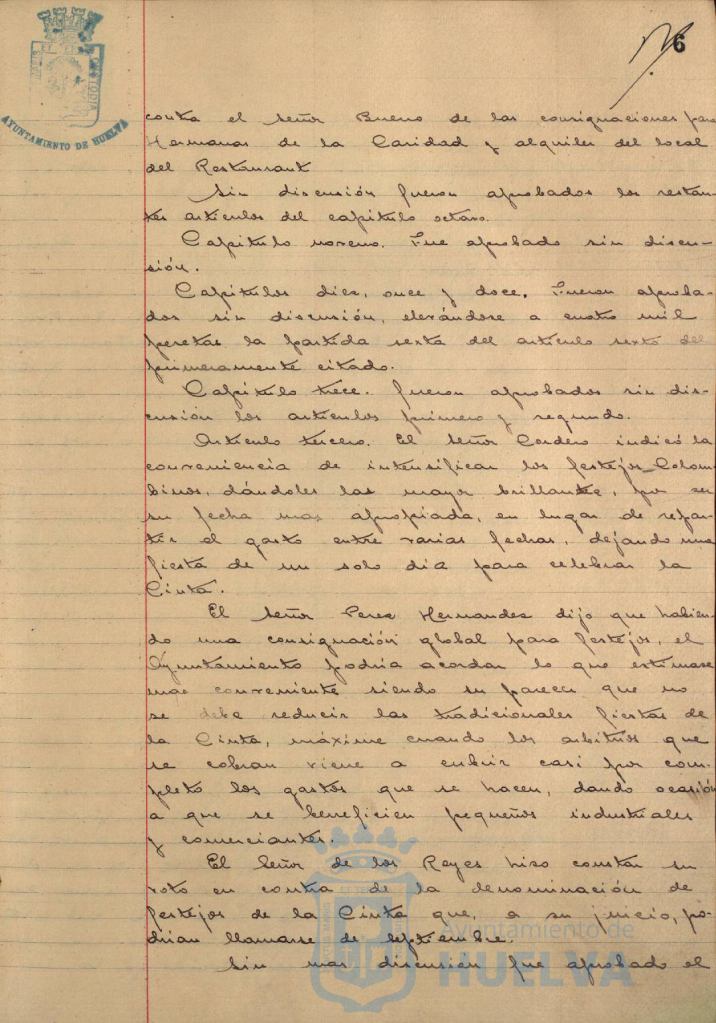 6
AYUNTAMIENTO DE HUELVA
contra el señor Bueno de las consignaciones para
Hermanas de la Caridad y alquiler del local
del Restaurant
Sin discusión fueron aprobados los restan-
tes artículos del capítulo octavo.
Capítulo noveno. Fue aprobado sin discu-
sión.
Capítulos diez, once y doce. Fueron aproba-
dos sin discusión, elevándose a cuatro mil
pesetas la partida sexta del artículo sexto del
primeramente citado.
Capítulo trece. Fueron aprobados sin dis-
cusión los artículos primero y segundo.
Artículo tercero. El señor Cordero indicó la
conveniencia de intensificar los festejos Colom
binos, dándoles las mayor brillantez, por ser
su fecha mas apropiada, en lugar de repar-
tir el gasto entre varias fechas, dejando una
fiesta de un solo dia para celebrar la
Cinta.
El Señor Perez Hernandez dijo que habien-
do una consignación global para festejos, el
Ayuntamiento podria acordar lo que estimase
mas conveniente siendo su parecer que no
se debe reducir las tradicionales fiestas de
la Cinta, máxime cuando los arbitrios que
se cobran viene a cubrir casi por com-
pleto los gastos que se hacen, dando ocasión
a que se beneficien pequeños industriales
y comerciantes.
El Señor de los Reyes hizo constar su
voto en contra de la denominación de
festejos de la Cinta que, a su juicio, po-
drian llamarse de septiembre.
Sin mas discusion fue aprobado el
Ayuntamiento de
HUELVA